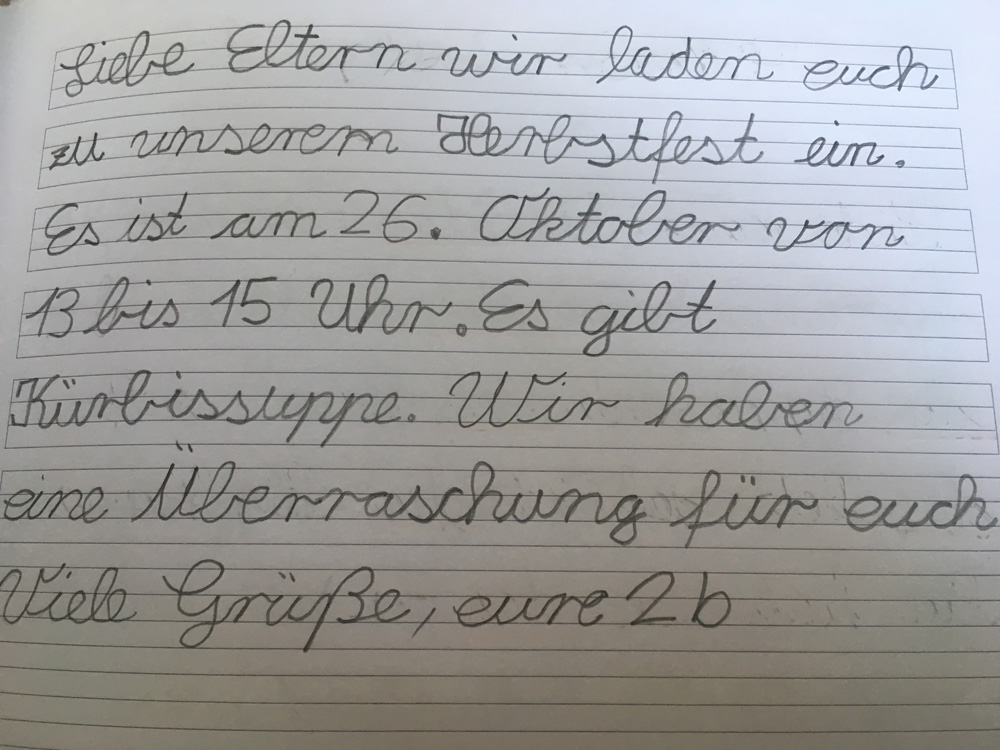 Liebe Eltern wir laden euch
zu unserem Herbstfest ein.
Es ist am 26. Oktober von
13 bis 15 Uhr. Es gibt
Kürbissuppe. Wir haben
eine Überraschung für euch
Viele Grüße, eure 2b